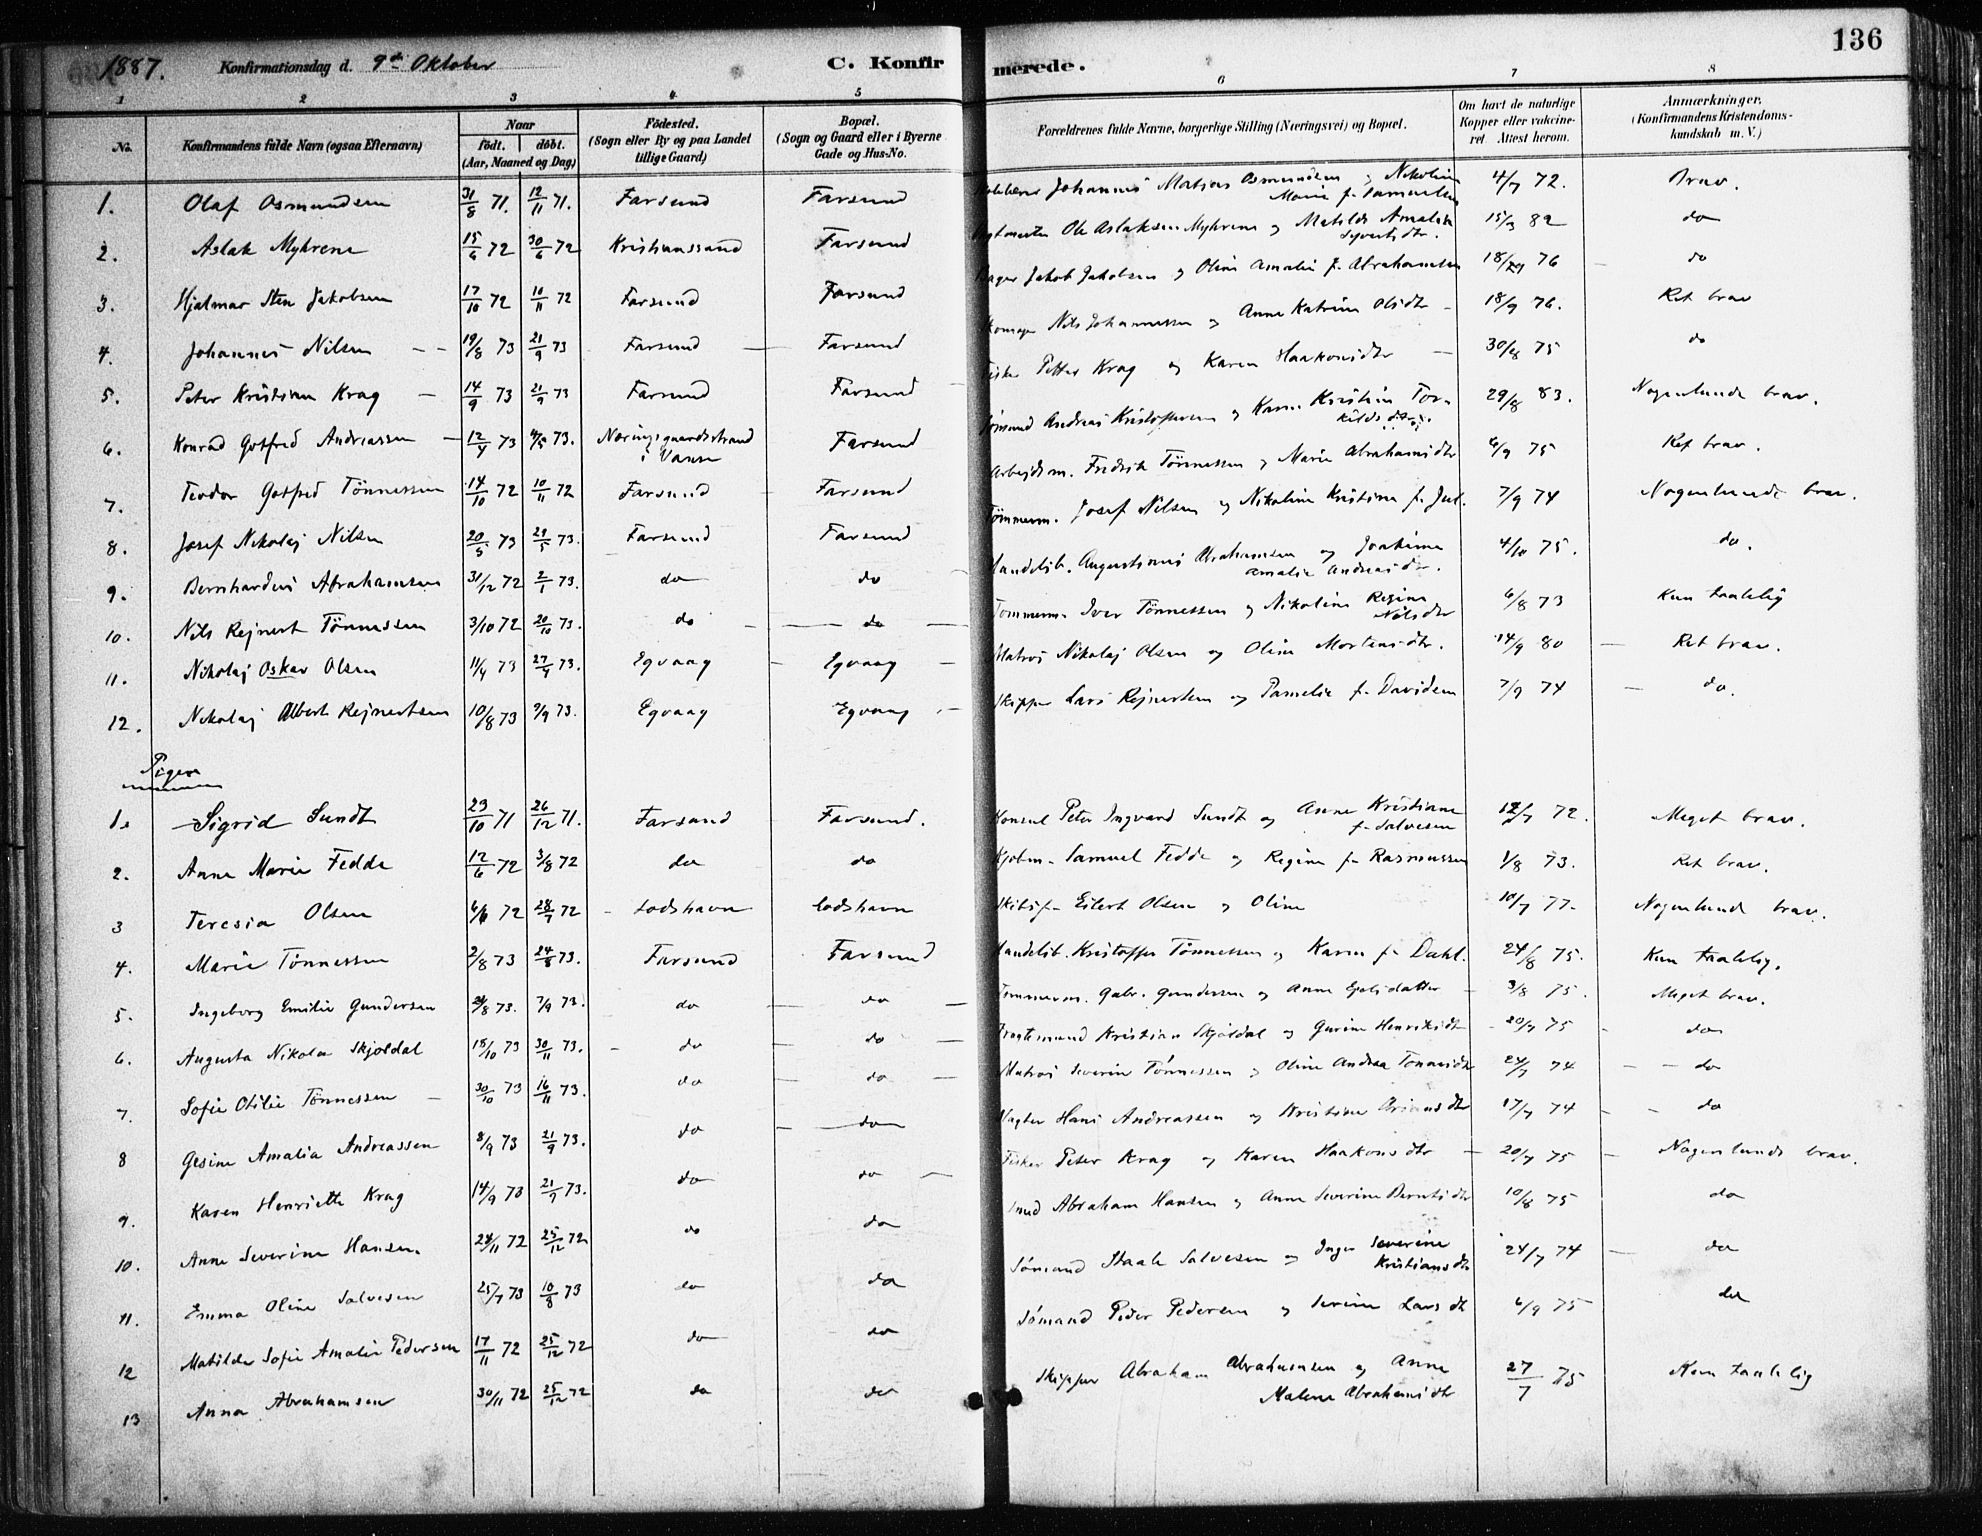 1887. Konfirmationsdag d. 9de Oktober C. Konfirmerede. 136
1 2 3 4 5 6 7 8
No. Konfirmandens fulde Navn (ogsaa Efternavn) Naar født. døbt. (Aar, Maaned og Dag) Fødested. (Sogn eller By og paa Landet tillige Gaard) Bopæl. (Sogn og Gaard eller i Byerne Gade og Hus-No. Forældrenes fulde Navne, borgerlige Stilling (Næringsvei) og Bopæl. Om havt de naturlige Kopper eller vakcineret. Attest herom. Anmærkninger. (Konfirmandens Kristendomskundskab m. V.)
1. Olaf Osmundsen 31/8 71. 12/11 71. Farsund Farsund Johannes Matias Osmundsen og Nikoline Marie f. Samuelsen 4/7 72. Brav.
2. Aslak Myhrene 15/6 72 30/6 72 Kristianssand Farsund Ole Aslaksen Myhrene og Matilde Amalia Syvertsdtr. 15/3 82 do
3. Hjalmar Sten Jakobsen 17/10 72 10/11 72 Farsund Farsund Jakob Jakobsen og Oline Amalie f. Abrahamsen 18/ 76 do
4. Johannes Nilsen 19/8 73 21/9 73 Farsund Farsund Nils Johannessen og Anne Katrine Olsdtr 18/9 76. Ret brav
5. Peter Kristian Krag 14/9 73 21/9 73 Farsund Farsund Fisker Petter Krag og Karen Haakonsdtr 30/8 75 do
6. Konrad Gotfred Andreassen 12/4 73 4/5 73. Næringsgaardsstrand i Vanse Farsund Sømand Andreas Kristoffersen og Karen Kristine Torkildsdtr. 29/8 83. Nogenlunde brav.
7. Teodor Gotfred Tönnessen 14/10 72 10/11 72 Farsund Farsund Arbejdsm. Fredrik Tönnessen og Marie Abrahamsdtr 6/9 75 Ret brav.
8. Josef Nikolaj Nilsen 20/5 73 29/5 73. Farsund Farsund Tømmerm. Josef Nilsen og Nikoline Kristine f. Jul. 7/9 74 Nogenlunde brav.
9. Bernhardus Abrahamsen 31/12 72 2/1 73. do do Handelsb. Augustinus Abrahamsen og Joakime Amalie Andreasdtr. 4/10 75. do.
10. Nils Rejnert Tönnessen 3/10 72 20/10 73. do do Tommerm. Iver Tönnessen og Nikoline Regine Nilsdtr 6/8 73 Kun taalelig
11. Nikolaj Oskar Olsen 11/4 73 27/4 73. Egvaag Egvaag Matros Nikolaj Olsen og Oline Mortensdtr. 14/9 80 Ret brav.
12. Nikolaj Albert Rejnertsen 10/8 73 /9 73. Egvaag Egvaag Skipper Lars Rejnertsen og Pamelie f. Davidsen 7/9 74 do.
Piger
1. Sigrid Sundt 29/10 71 26/12 71. Farsund Farsund. Konsul Peter Ingvard Sundt og Anne Kristiane f. Salvesen 12/7 72. Meget brav.
2. Anne Marie Fedde 12/6 72 3/8 72 do do Kjøbm. Samuel Fedde og Regine f. Rasmussen 1/8 73. Ret brav.
3 Teresia Olsen 6/ 72 28/7 72 Lodshavn Lodshavn Eilert Olsen og Oline 10/7 77. Nogenlunde brav.
4. Marie Tönnessen 2/8 73 24/8 73. Farsund Farsund Handelsb. Kristoffer Tönnessen og Karen f. Dahl. 24/8 75. Kun taalelig.
5. Ingeborg Emilie Gundersen /8 73. 7/9 73. do do Tommerm. Gabr. Gundersen og Anne Ejelsdatter 3/8 75. Meget brav.
6. Augusta Nikolea Skjoldal 15/10 73 30/11 73. do do Kristian Skjoldal og Gurine Henriksdtr 20/7 75 do
7. Sofie Otilie Tönnessen 30/10 73 16/11 73. do do Matros Severin Tönnessen og Oline Andrea Tonnesdtr 24/7 74 do
8 Gesine Amalia Andreassen 8/9 73 21/9 73. do do Vagter Hans Andreassen og Kristine Ariansdtr 17/7 74 do
9. Karen Henriette Krag 14/9 73 21/9 73. do do Fisker Peter Krag og Karen Haakonsdtr 20/7 75 Nogenlunde brav.
10. Anne Severine Hansen. 24/11 72 25/12 72 do do Smed Abraham Hansen og Anne Severine Berntsdtr 10/8 75 do
11. Emma Oline Salvesen 25/7 73 10/8 73 do do Sömand Staale Salvesen og Inger Severine Kristiansdtr 24/7 74 do
12 Matilde Sofie Amalie Pedersen 17/11 72 25/12 72 do do Sömand Peder Pedersen og Serine Larsdtr 6/9 75 do
13 Anna Abrahamsen 30/11 72 25/12 72 do do Skipper Abraham Abrahamsen og Anne Malene Abrahamsdtr 27/7 75 Kun taalelig